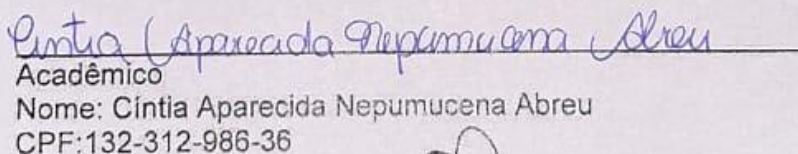 Cintia Aparecida Nepumucena Abreu
Acadêmico
Nome: Cíntia Aparecida Nepumucena Abreu
CPF:132-312-986-36